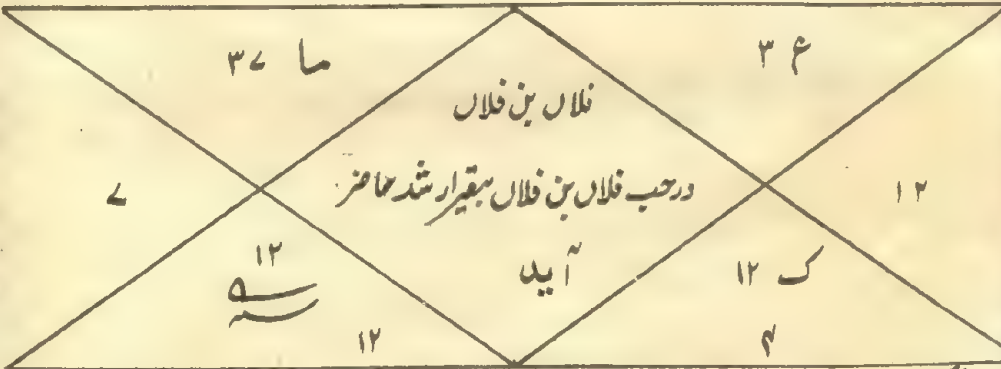 ع ۳
ما ۳۷
فلاں بن فلاں
درحب فلاں بن فلاں بیقرار شد حاضر
آید
۱۲
۷
ک ۱۲
۱۲
۱۲